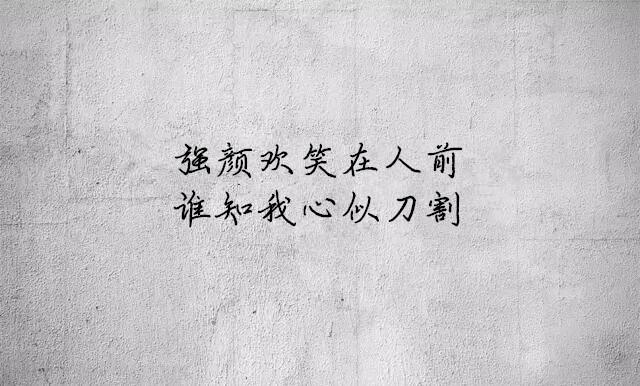 强颜欢笑在人前
谁知我心似刀割